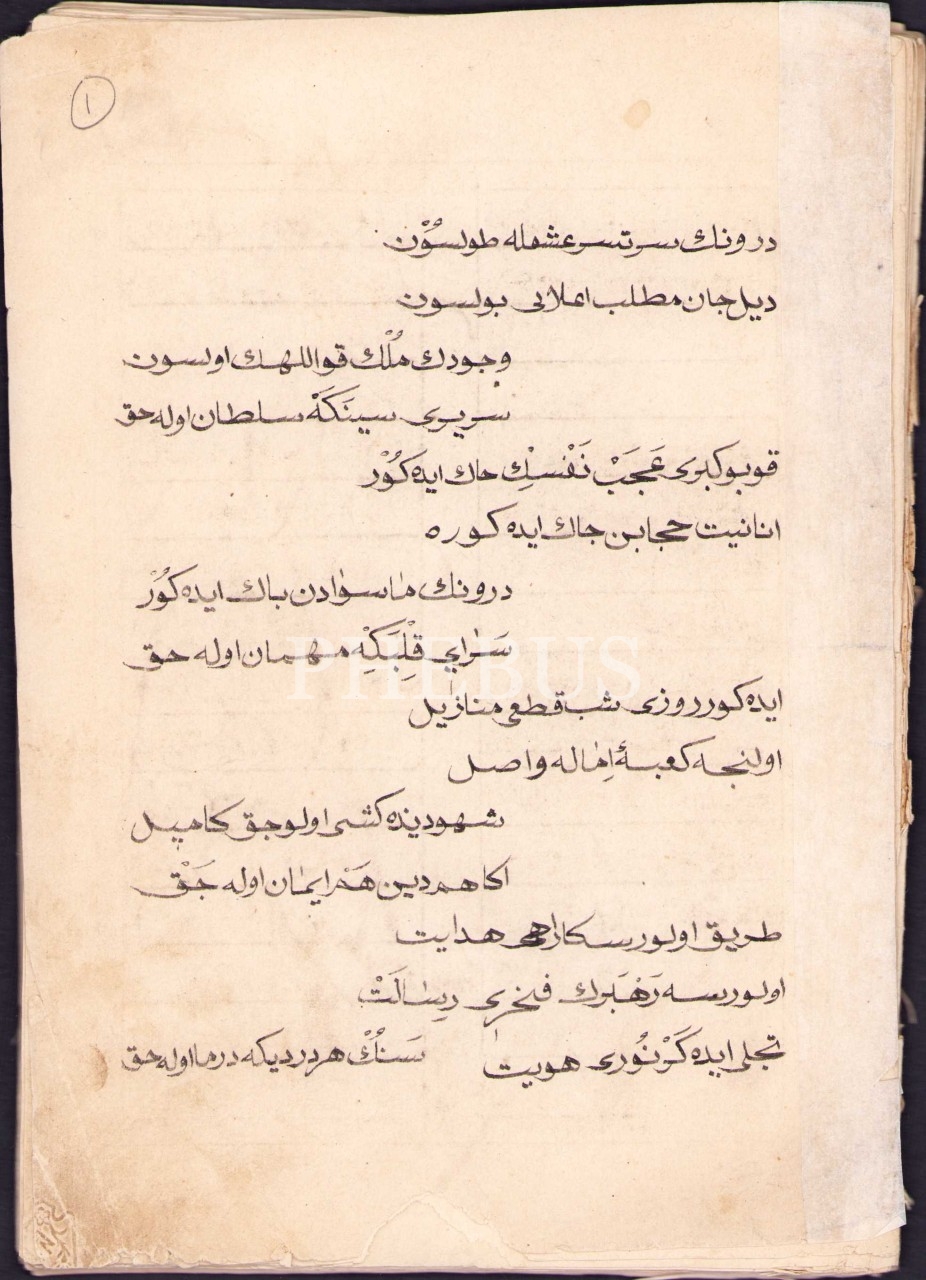 ١
درونك سرتسر عشقله طولسُوْن
ديل جان مطلب اعلايى بولسون
وجودك مُلْك قواللهك اولسون
سريرى سينَكَهْ سلطان اوله حق
قوبو كبرى عَجَبْ نَفْسِكْ حاك ايده كُوْر
انانيت حجابن جاك ايده كوره
درونك ماسوادن باك ايده كُوْر
سَرايِ قِلْبَكِه مهمان اوله حق
PHEBUS
ايده كور روزى شب قطعى منازيل
اولنجه كعبهٔ اِماله واصل
شهودينده كشى اولوجق كاميل
اكا هم دين هَمْ ايمان اوله جَقْ
طريق اولورسكا راهى هدايت
اولورسه رَهْبَرك فخرى رِسالَتْ
تجلى ايده كَرْ نُورى هويت
سَنُكْ هر درديكه درما اوله حق